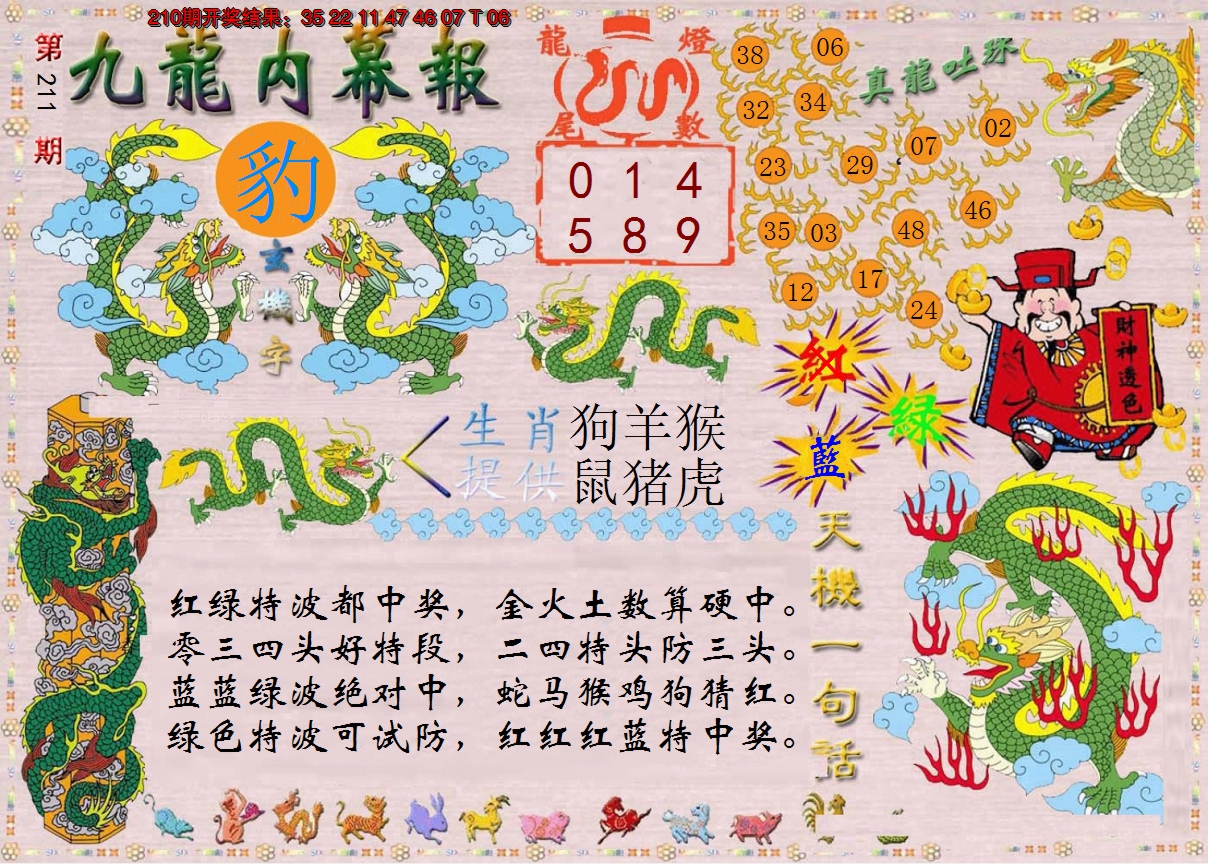 210期开奖结果：35 22 11 47 46 07 T 06
第211期
九龍内幕報
豹
玄機字
龍燈
尾數
0 1 4
5 8 9
真龍吐珠
38 06
32 34
23 29 07 02
35 03 48 46
12 17 24
紅
綠
藍
財神透色
生肖提供
狗羊猴
鼠猪虎
天機一句話
红绿特波都中奖，金火土数算硬中。
零三四头好特段，二四特头防三头。
蓝蓝绿波绝对中，蛇马猴鸡狗猜红。
绿色特波可试防，红红红蓝特中奖。